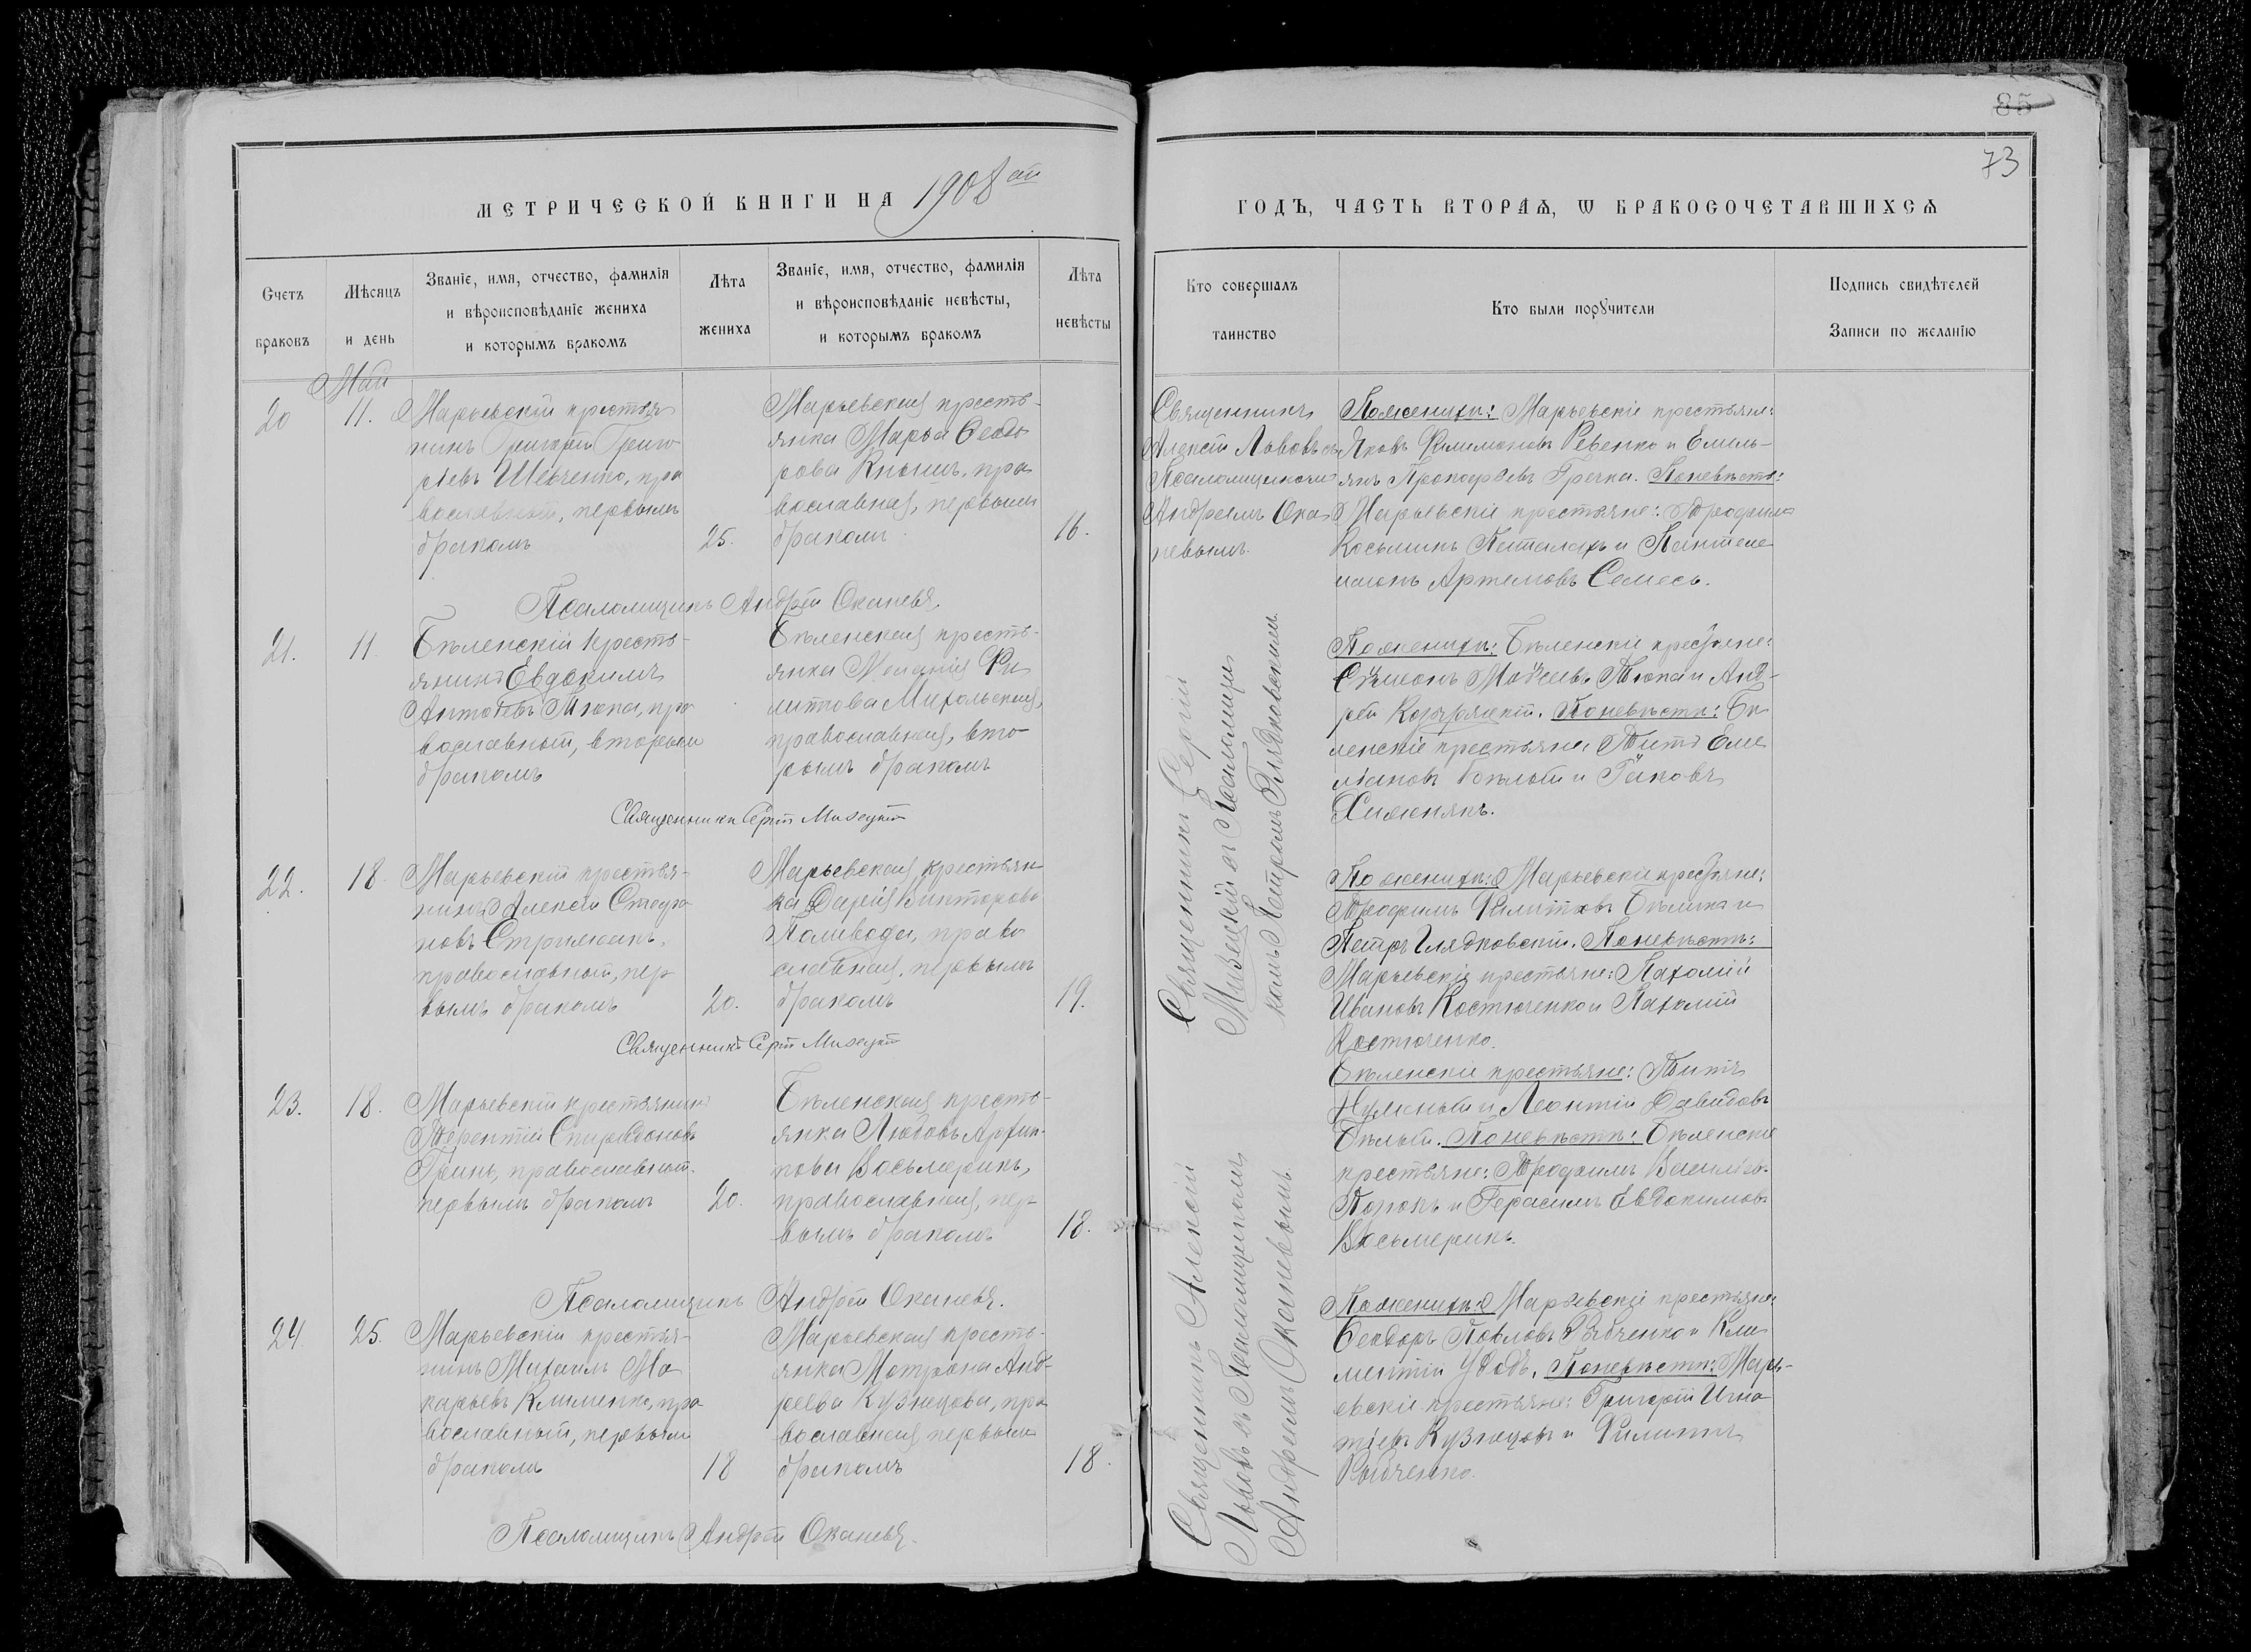 85
73
МЕТРИЧЕСКОЙ КНИГИ НА 1908ой
ГОДЪ, ЧАСТЬ ВТОРАѦ, Ѡ БРАКОСОЧЕТАВШИХСѦ
Счетъ
браковъ
Мѣсяцъ
и день
Званіе, имя, отчество, фамилія
и вѣроисповѣданіе жениха
и которымъ бракомъ
Лѣта
жениха
Званіе, имя, отчество, фамилія
и вѣроисповѣданіе невѣсты,
и которымъ бракомъ
Лѣта
невѣсты
Кто совершалъ
таинство
Кто были порꙋчители
Подпись свидѣтелей
Записи по желанію
Май
20
11.
Марьевскій крестья
нинъ Григорій Григо
рьевъ Шевченко, пра
вославный, первымъ
бракомъ
25.
Марьевская кресть-
янка Марѳа Ѳеодо
рова Кнышъ, пра
вославная, первымъ
бракомъ
16.
Священникъ
Алексій Львовъ съ
Псаломщикомъ
Андреемъ Ока
невымъ.
По женихѣ: Марьевскіе крестьяне:
Яковъ Филимоновъ Ревенко и Емель-
янъ Прокофьевъ Гречка. По невѣстѣ:
Марьевскіе крестьяне: Трофимъ
Косьминъ Петалахъ и Пантеле
имонъ Артемовъ Семесь.
Псаломщикъ Андрей Оканевъ
21.
11.
Бѣленскій кресть-
янинъ Евдокимъ
Антоневъ Тюпа, пра
вославный, вторымъ
бракомъ
Бѣленская кресть-
янка Меланія Фи
липпова Михальская,
православная, вто-
рымъ бракомъ
Священникъ Сергій
Мизецкій съ Псаломщи
комъ Петромъ Глядковскимъ.
По женихѣ: Бѣленскіе крестьяне:
Сѵмеонъ Моѵсеевъ Тюпа и Анд-
рей . По невѣстѣ: Бѣ
ленскіе крестьяне Титъ Еме
льяновъ Бѣлый и Іаковъ
Хижнякъ.
Священникъ Сергій Мизецкій
22.
18.
Марьевскій крестья-
нинъ Алексѣй Стефа
новъ Стрижакъ,
православный, пер
вымъ бракомъ
20.
Марьевская крестьян
ка Дарія Викторова
Паливода, право
славная, первымъ
бракомъ
19.
По женихѣ: Марьевскіе крестьяне:
Трофимъ Филипповъ Бѣлика и
Петръ Глядковскій. По невѣстѣ:
Марьевскіе крестьяне: Пахомій
Ивановъ Костюченко и Пахомій
Костюченко.
Священникъ Сергій Мизецкій
23.
18.
Марьевскій крестьянинъ
Терентій Спиридоновъ
Гринь, православный.
первымъ бракомъ
20.
Бѣленская кресть-
янка Любовь Архип-
пова Восьмерикъ,
православная, пер-
вымъ бракомъ
18.
Священникъ Алексій
Львовъ съ Псаломщикомъ
Андреемъ Оканевымъ.
Бѣленскіе крестьяне: Титъ
Нужный и Леонтій Давидовъ
Бѣлый. По невѣстѣ: Бѣленскіе
крестьяне: Трофимъ Васильевъ
Порохъ и Герасимъ Евдокимовъ
Восьмерикъ.
Псаломщикъ Андрей Оканевъ.
24.
25.
Марьевскій крестья-
нинъ Михаилъ Ма
карьевъ Клименко, пра
вославный, первымъ
бракомъ
18
Марьевская кресть-
янка Матрона Анд-
реева Кузнецова, пра
вославная, первымъ
бракомъ
18.
По женихѣ: Марьевскіе крестьяне:
Ѳеодоръ Павловъ Рябченко и Кли
ментій Удодъ. По невѣстѣ: Марь-
евскіе крестьяне: Григорій Игна
тіевъ Кузнецовъ и Филиппъ
Рябченко.
Псаломщикъ Андрей Оканевъ.